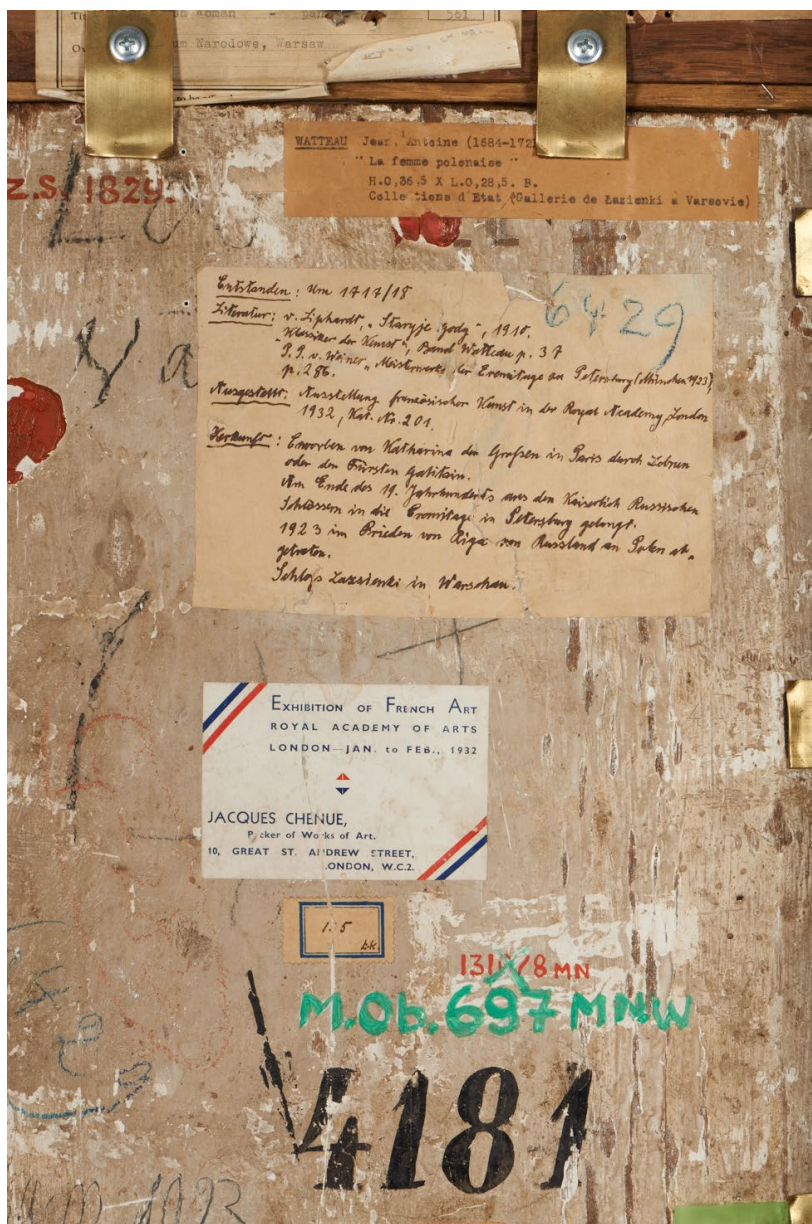 Woman - pan 561
um Narodowe, Warsaw
to be
WATTEAU Jean, Antoine (1684-172
" La femme polenaise "
H.0,36,5 X L.0,28,5. B.
Collections d'Etat (Gallerie de Łazienki a Varsovie)
Z.S. 1829.
6429
Entstanden: Um 1717/18
Literatur: v. Liphardt, "Staryje gody", 1910.
"Klassiker der Kunst", Band Watteau p. 37
P. P. v. Weiner, "Meisterwerke der Eremitage zu Petersburg (München 1923),
p. 286.
Ausgestellt: Ausstellung französischer Kunst in der Royal Academy, London
1932, Kat. No. 201.
Herkunft: Erworben von Katharina der Großen in Paris durch Lebrun
oder den Fürsten Galitzin.
Am Ende des 19. Jahrhunderts aus den Kaiserlich Russischen
Schlössern in die Eremitage in Petersburg gelangt.
1923 im Frieden von Riga von Russland an Polen ab-
getreten.
Schloss Lazienki in Warschau.
EXHIBITION OF FRENCH ART
ROYAL ACADEMY OF ARTS
LONDON—JAN. to FEB., 1932
JACQUES CHENUE,
Packer of Works of Art.
10, GREAT ST. ANDREW STREET,
LONDON, W.C.2.
M.Ob.697 MNW
4181